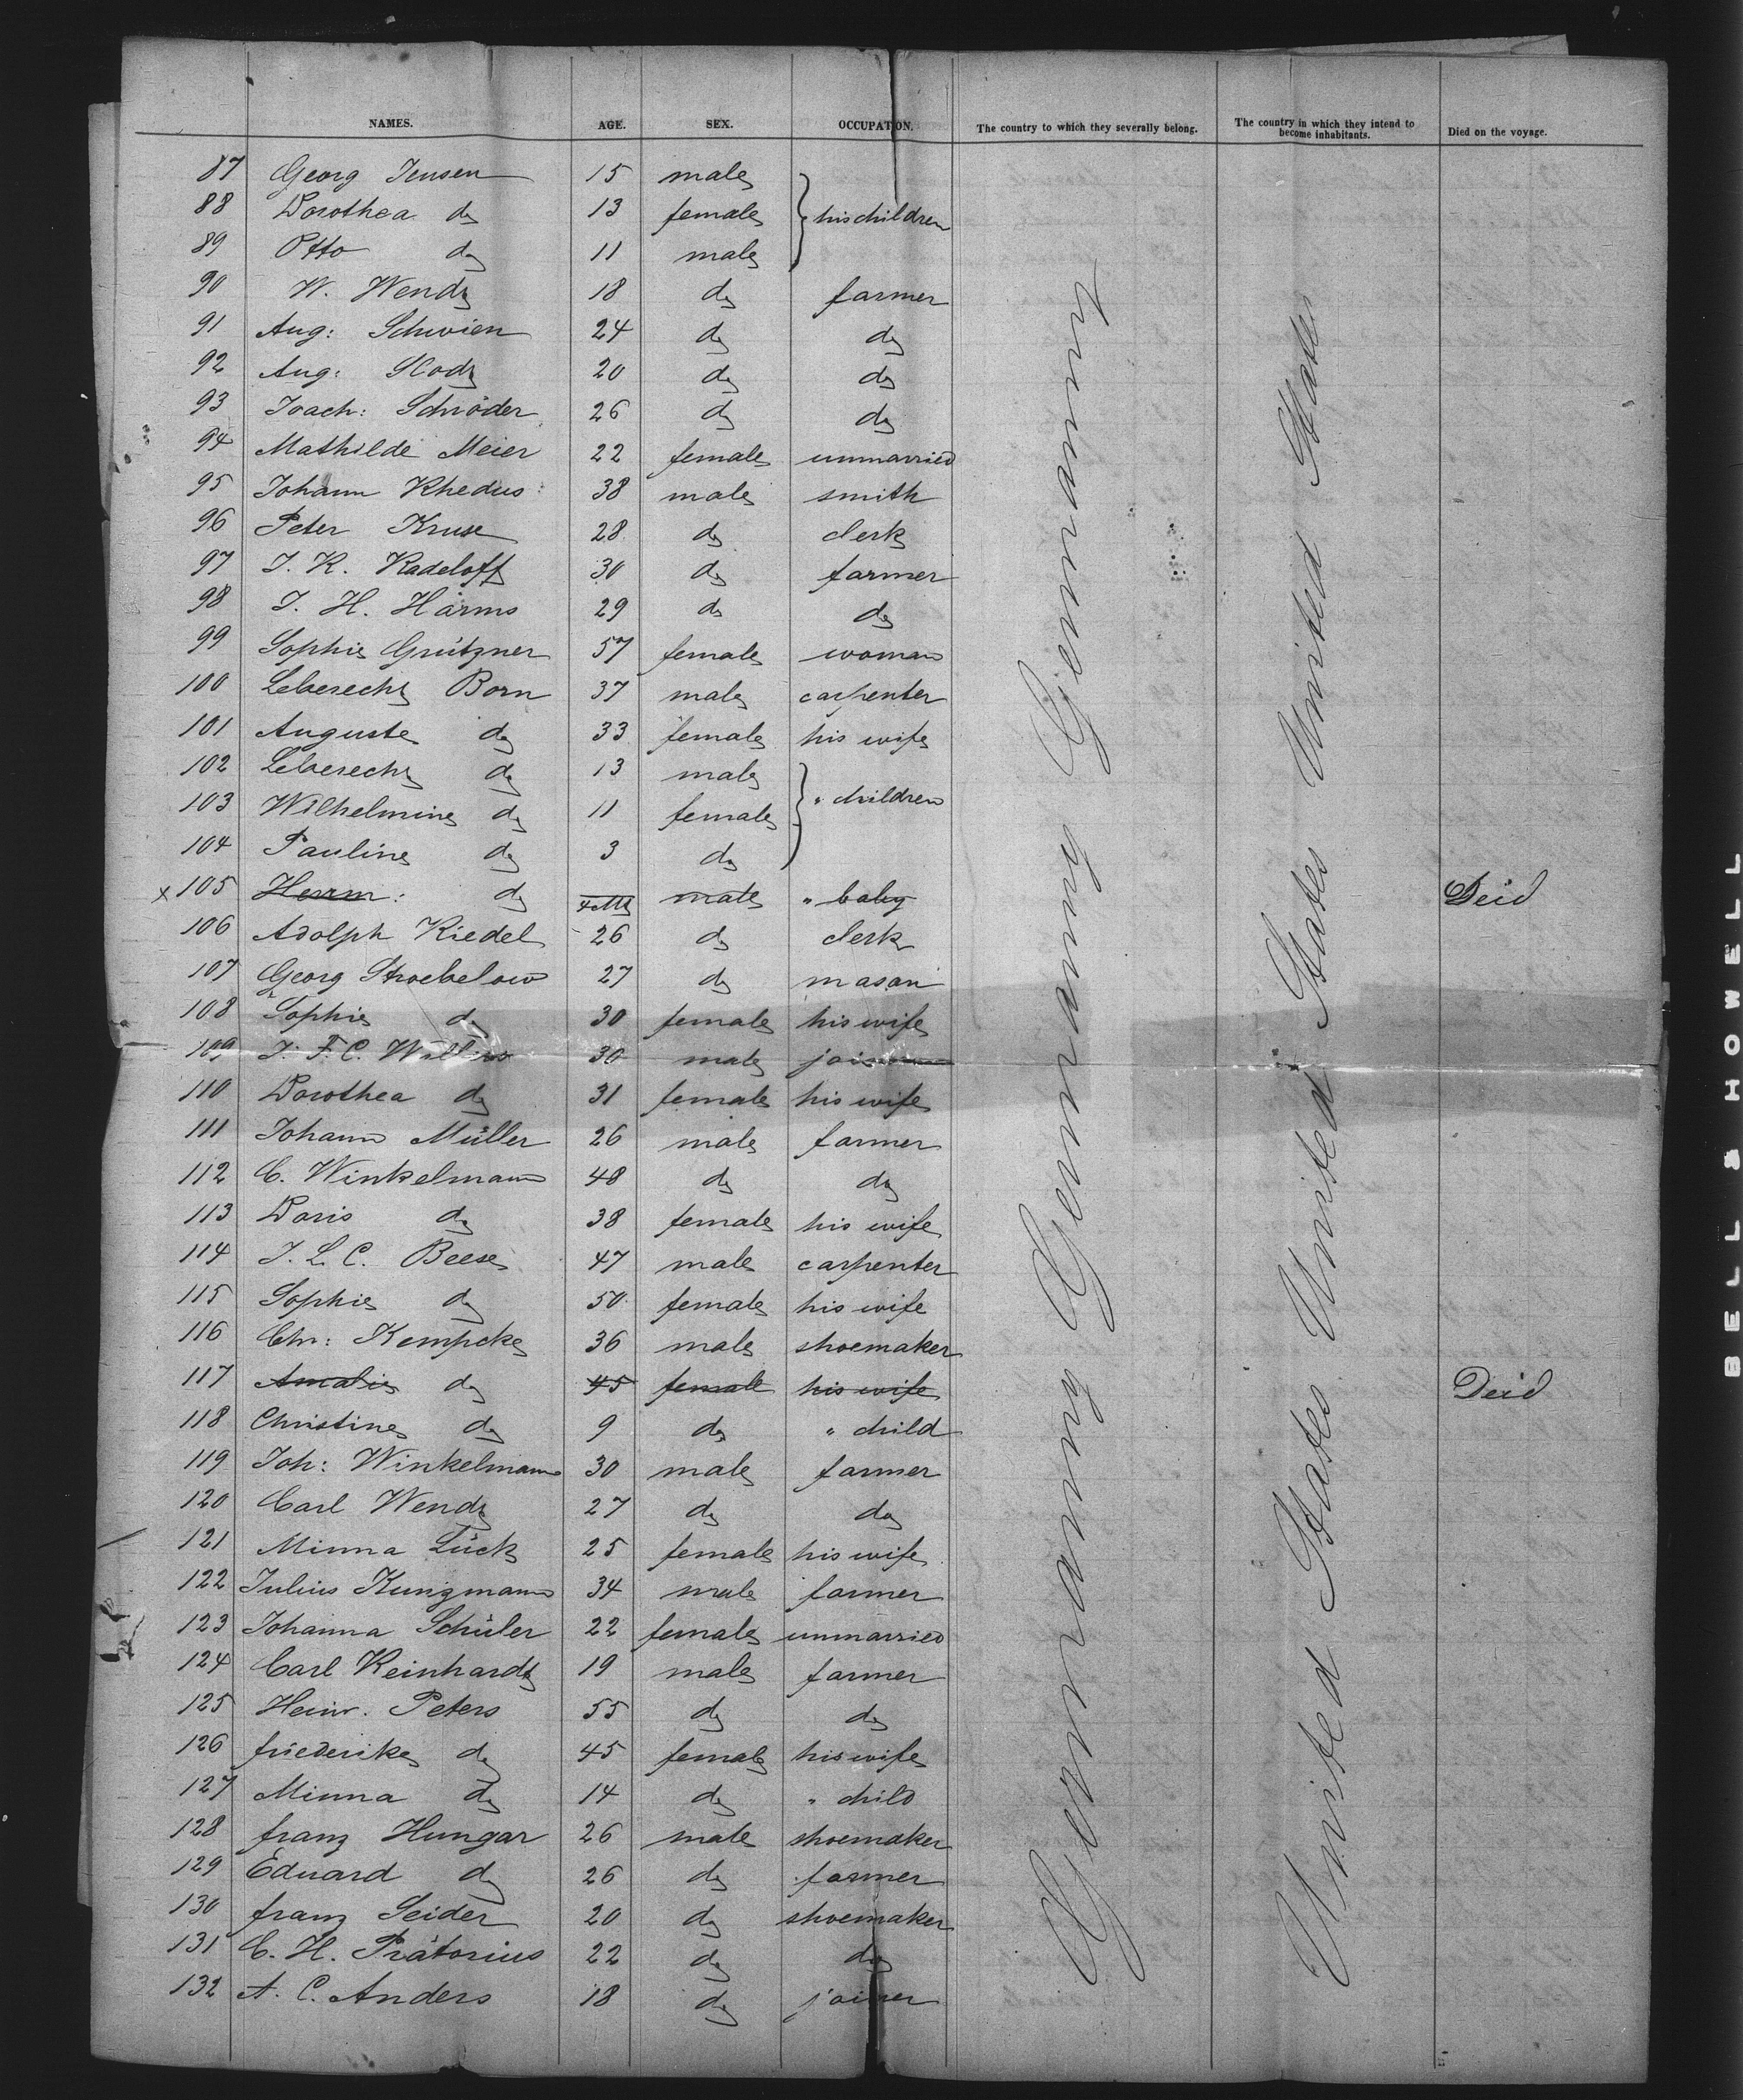 NAMES. AGE. SEX. OCCUPATION. The country to which they severally belong. The country in which they intend to become inhabitants. Died on the voyage.
87 Georg Jensen 15 male
88 Dorothea do 13 female } his children
89 Otto do 11 male
90 W. Wendt 18 do farmer
91 Aug: Schwien 24 do do
92 Aug: 20 do do
93 Joach: Schröder 26 do do
94 Mathilde Meier 22 female unmarried
95 Johann Rhedus 38 male smith
96 Peter Kruse 28 do clerk
97 J. K. Radeloff 30 do farmer
98 J. H. Härms 29 do do
99 Sophie Grützner 57 female woman
100 Leberecht Born 37 male carpenter
101 Auguste do 33 female his wife
102 Leberecht do 13 male
103 Wilhelmine do 11 female } " children
104 Pauline do 3 do
x 105 Herm: do 4 Mt male " baby Deid
106 Adolph Riedel 26 do clerk
107 Georg Stroebelow 27 do mason
108 Sophie do 30 female his wife
109 J. F. C. 30 male joiner
110 Dorothea do 31 female his wife
111 Johann Müller 26 male farmer
112 C. Winkelmann 48 do do
113 Doris do 38 female his wife
114 J. L. C. Beese 47 male carpenter
115 Sophie do 50 female his wife
116 Chr: Kempcke 36 male shoemaker
117 Amalie do 45 female his wife Deid
118 Christine do 9 do " child
119 Joh: Winkelmann 30 male farmer
120 Carl Wendt 27 do do
121 Minna Lück 25 female his wife
122 Julius Kunzmann 34 male farmer
123 Johanna Schüler 22 female unmarried
124 Carl Reinhardt 19 male farmer
125 Heinr. Peters 55 do do
126 friederike do 45 female his wife
127 Minna do 14 do " child
128 franz Hungar 26 male shoemaker
129 Eduard do 26 do farmer
130 franz Seider 20 do shoemaker
131 C. H. Prätorius 22 do do
132 A. C. Anders 18 do joiner
Germany Germany Germany Germany
United States United States United States
BELL & HOWELL